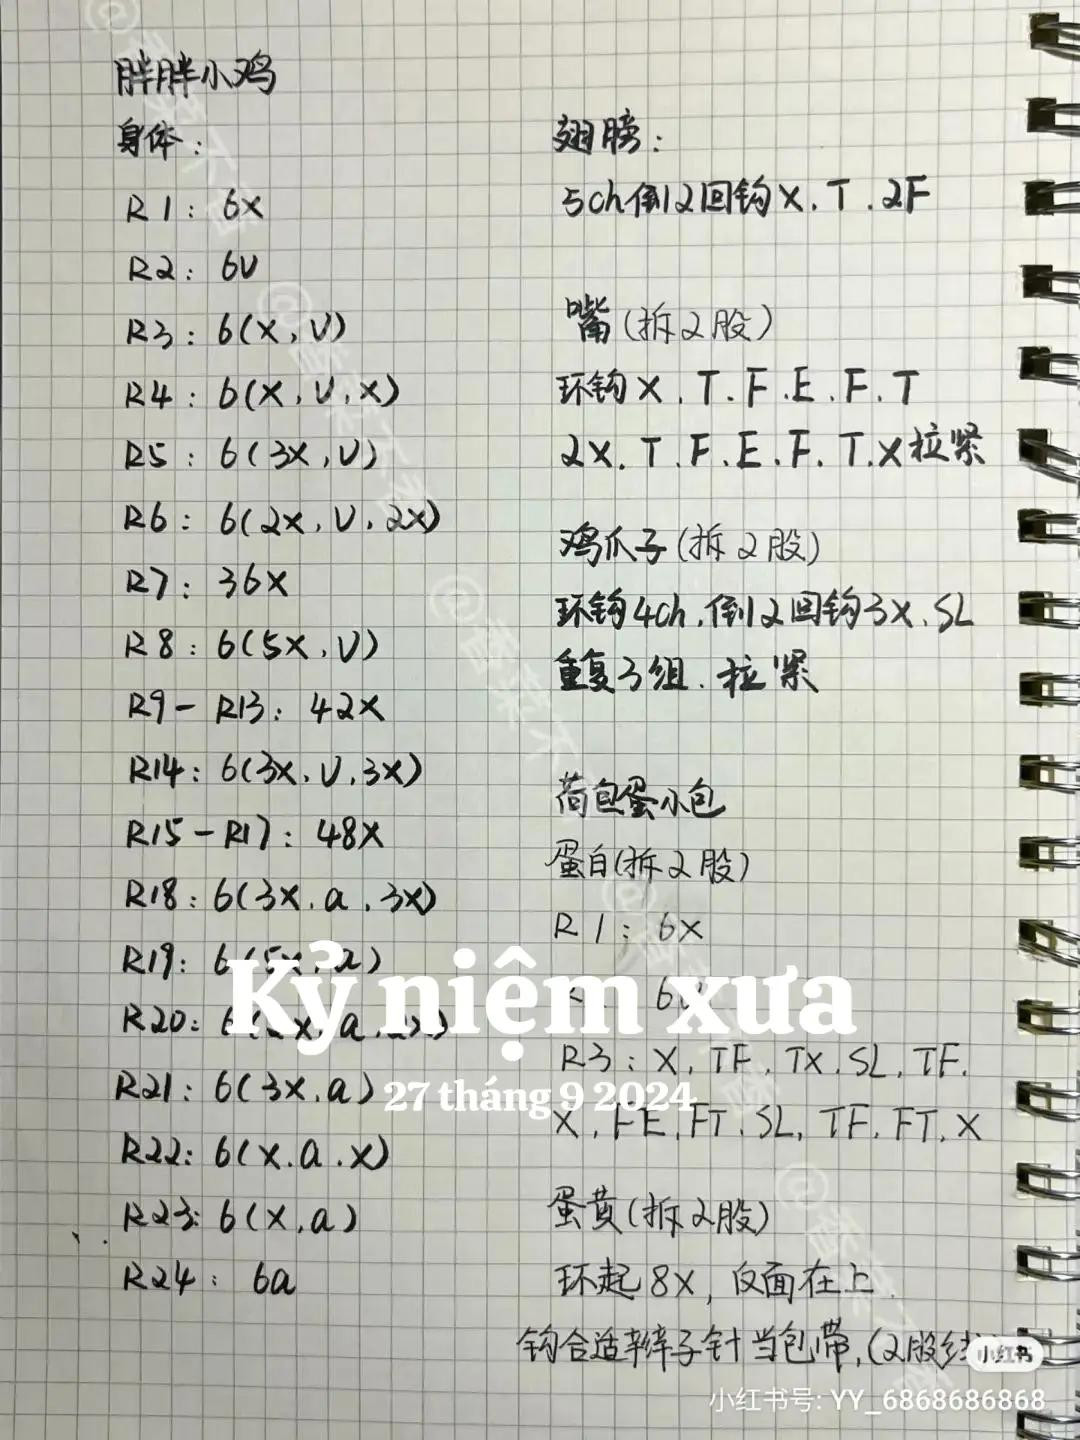 胖胖小鸡
身体：
R1：6X
R2：6V
R3：6(X,V)
R4：6(X,V,X)
R5：6(3X,V)
R6：6(2X,V,2X)
R7：36X
R8：6(5X,V)
R9-R13：42X
R14：6(3X,V,3X)
R15-R17：48X
R18：6(3X,a,3X)
R19：6(5X,a)
R20：6(2X,a,2X)
R21：6(3X,a)
R22：6(X,a,X)
R23：6(X,a)
R24：6a
翅膀：
5ch倒2回钩X.T.2F
嘴(拆2股)
环钩X.T.F.E.F.T
2X.T.F.E.F.T.X拉紧
鸡爪子(拆2股)
环钩4ch,倒2回钩3X,SL
重复3组.拉紧
荷包蛋小包
蛋白(拆2股)
R1：6X
6V
R3：X,TF,TX,SL,TF,
X,FE,FT,SL,TF,FT,X
蛋黄(拆2股)
环起8X,反面在上
钩合适辫子针当包带,(2股
Kỷ niệm xưa
27 tháng 9 2024
小红书
小红书号: YY_6868686868